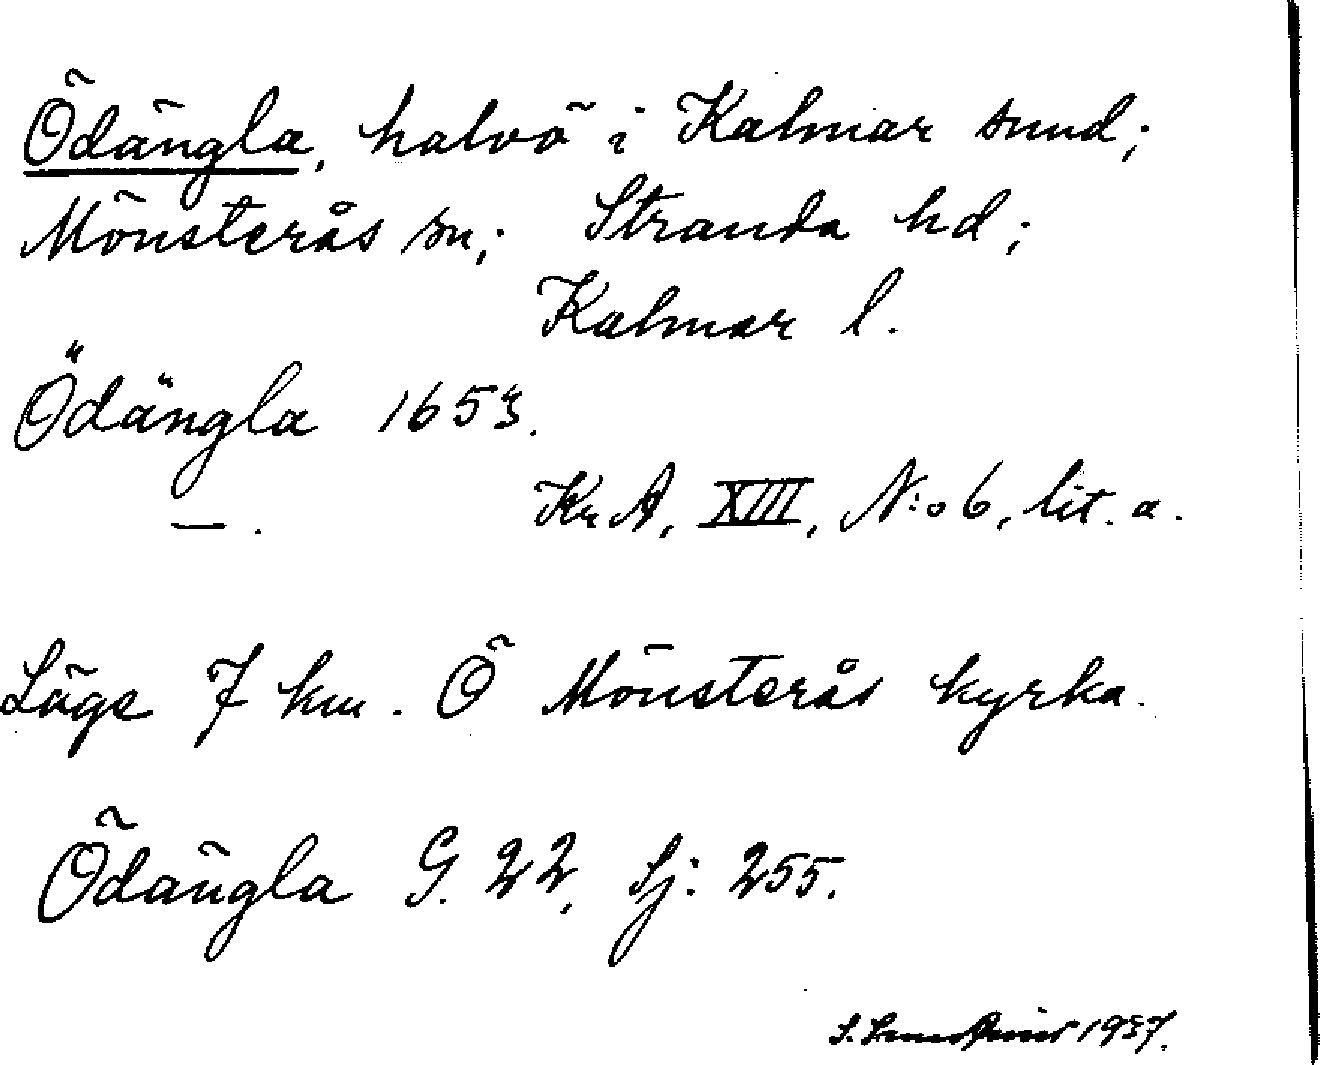 Ödängla, halvö i Kalmar sund;
Mönsterås sn; Stranda hd;
Kalmar l.
Ödängla 1653.
— . Kr A, XIII, N:o 6, lit. a.
Läge 7 km. Ö Mönsterås kyrka.
Ödängla G. 22, Sj: 255.
S. 1937.